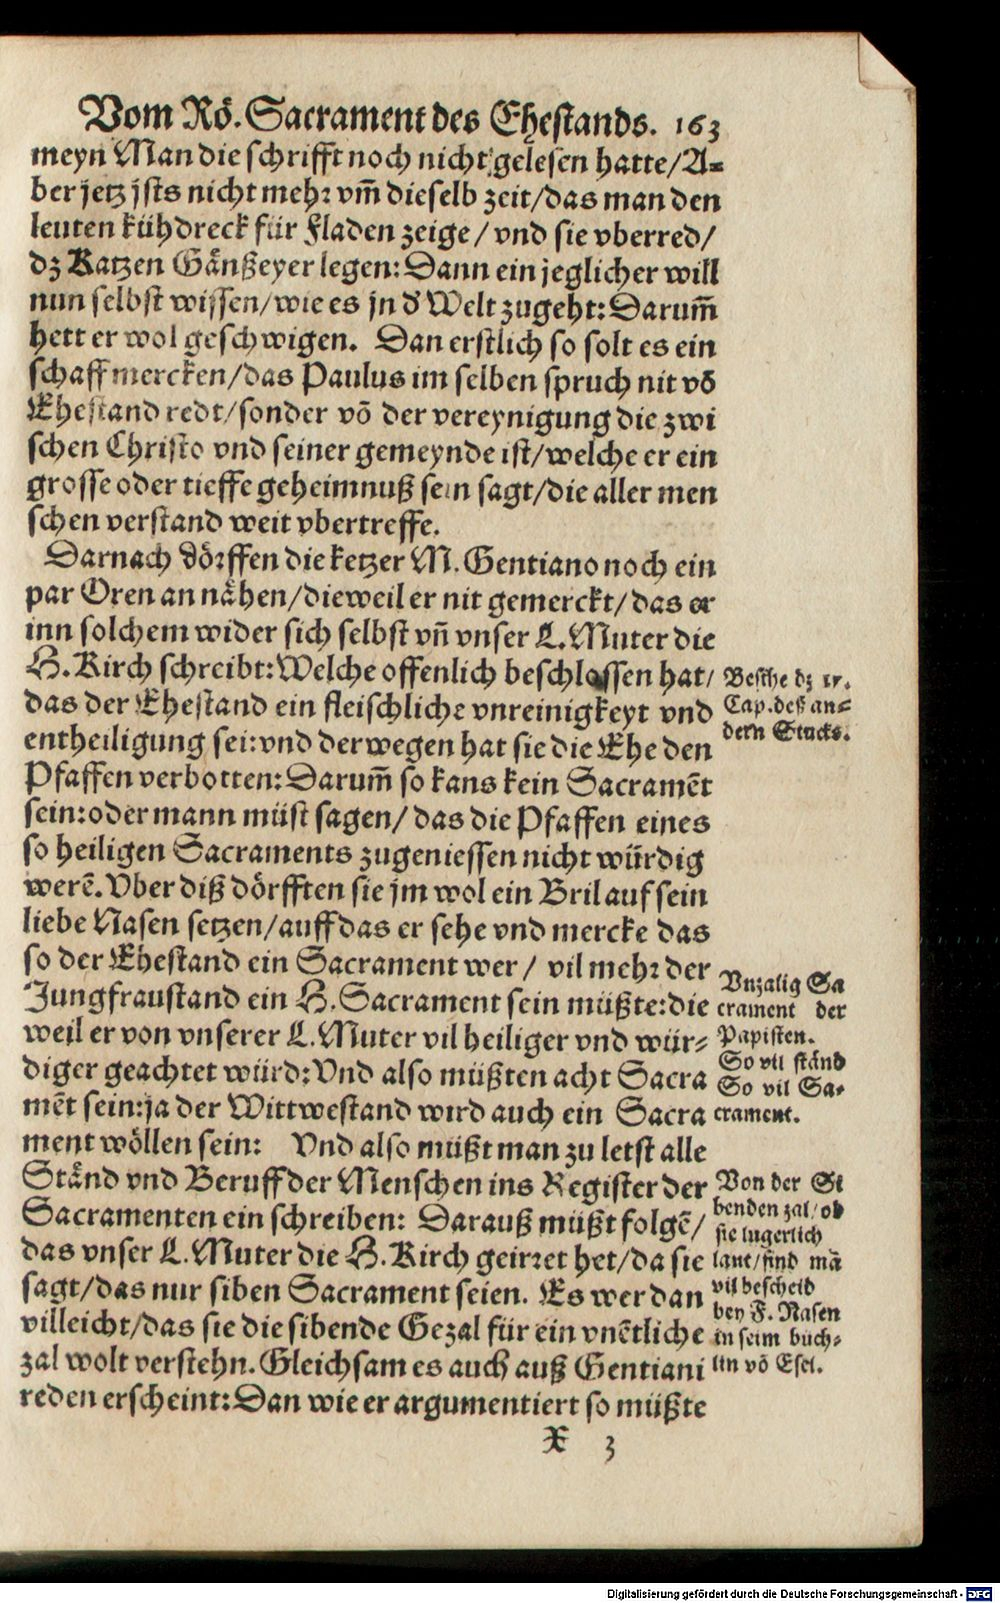 Vom Rö. Sacrament des Ehestands. 163
meyn Man die schrifft noch nicht gelesen hatte/A=
ber jetz jsts nicht mehr vm̃ dieselb zeit/das man den
leuten kühdreck für Fladen zeige/vnd sie vberred/
dz Katzen Gänßeyer legen: Dann ein jeglicher will
nun selbst wissen/wie es jn d' Welt zugeht: Darum̃
hett er wol geschwigen. Dan erstlich so solt es ein
schaff mercken/das Paulus im selben spruch nit võ
Ehestand redt/sonder võ der vereynigung die zwi
schen Christo vnd seiner gemeynde ist/welche er ein
grosse oder tieffe geheimnuß sein sagt/die aller men
schen verstand weit vbertreffe.
Darnach dörffen die ketzer M. Gentiano noch ein
par Oren an nähen/dieweil er nit gemerckt/das er
inn solchem wider sich selbst vñ vnser L. Muter die
H. Kirch schreibt: Welche offenlich beschlossen hat/
das der Ehestand ein fleischliche vnreinigkeyt vnd
entheiligung sei: vnd derwegen hat sie die Ehe den
Pfaffen verbotten: Darum̃ so kans kein Sacramẽt
sein: oder mann müst sagen/das die Pfaffen eines
so heiligen Sacraments zugeniessen nicht würdig
werẽ. Vber diß dörfften sie jm wol ein Bril auf sein
liebe Nasen setzen/auff das er sehe vnd mercke das
so der Ehestand ein Sacrament wer/ vil mehr der
Jungfraustand ein H. Sacrament sein müßte: die
weil er von vnserer L. Muter vil heiliger vnd wür=
diger geachtet würd: Vnd also müßten acht Sacra
mẽt sein: ja der Wittwestand wird auch ein Sacra
ment wöllen sein: Vnd also müßt man zu letst alle
Ständ vnd Beruff der Menschen ins Register der
Sacramenten ein schreiben: Darauß müßt folgẽ/
das vnser L. Muter die H. Kirch geirret het/da sie
sagt/das nur siben Sacrament seien. Es wer dan
villeicht/das sie die sibende Gezal für ein vnẽtliche
zal wolt verstehn. Gleichsam es auch auß Gentiani
reden erscheint: Dan wie er argumentiert so müßte
X 3
Besche dz
Cap. deß an=
dern Stucks.
Vnzalig Sa
crament der
Papisten.
So vil ständ
So vil Sa-
crament.
Von der Si
benden zal/ob
sie lugerlich
laut/find mã
vil bescheid
bey F. Nasen
in seim buch=
lin võ Esel.
Digitalisierung gefördert durch die Deutsche Forschungsgemeinschaft - DFG